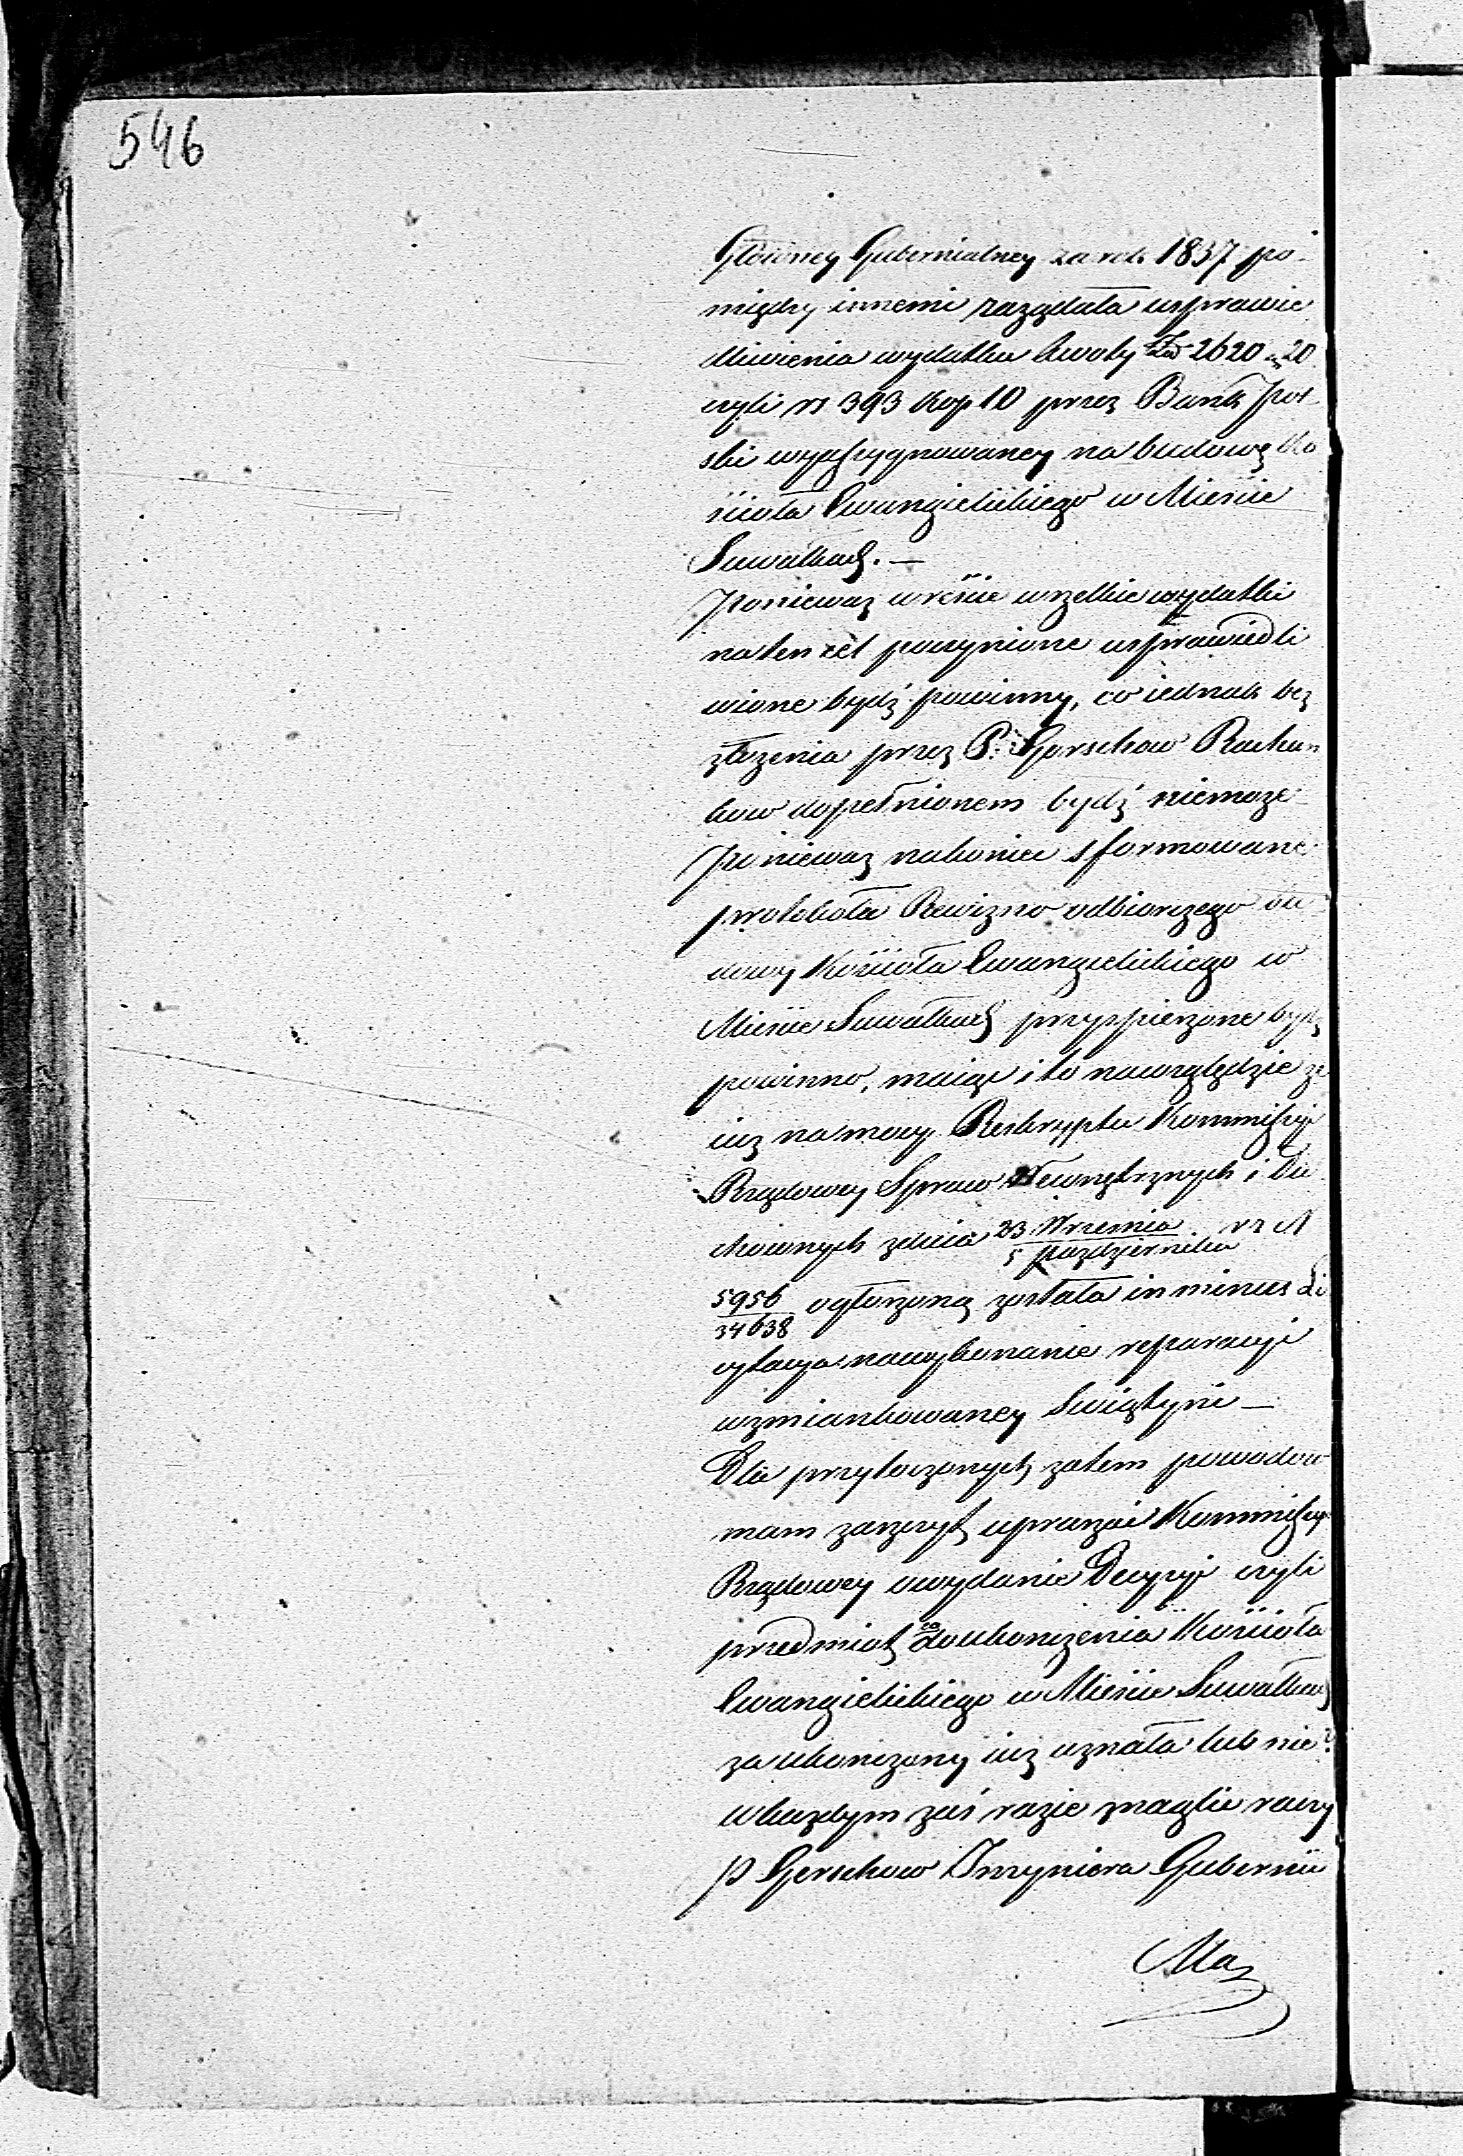 546
Główney Gubernialney za rok 1837 po-
między innemi zażądała usprawie
dliwienia wydatku kwoty Złp 2620 gr 20
czyli rs 393 kop 10 przez Bank Pol-
ski wyassygnowaney na budowę Ko
ścioła Ewangielickiego w Mieście
Suwałkach. —
Ponieważ wreście wszelkie wydatki
na ten cel poczynione usprawiedli
wione bydź powinny, co iednak bez
złożenia przez P. Gerschow Rachun
kow dopełnionem bydź niemoże
Ponieważ nakoniec sformowane
protokołu Rewizno odbiorczego bu
dowy Kościoła Ewangielickiego w
Mieście Suwałkach przyspieszone bydź
powinno, maiąc i to nawzględzie że
iuż na mocy Reskryptu Kommissyi
Rządowey Spraw Wewnętrznych i Du
chownych zdnia 23 Września / 5 października rz N
5956/34638 ogłoszoną została in minus Li
cytacya na wykonanie reparacyi
wzmiankowaney Świątyni —
Dla przytoczonych zatem powodow
mam zaszczyt upraszać Kommissyi
Rządowey o wydanie Decyzyi czyli
przedmiot co do ukonczenia Kościoła
Ewangielickiego w Mieście Suwałkach
za ukonczony iuż uznała lub nie?
w każdym zaś razie znaglić raczy
P Gerschow Inżyniera Gubernii
Ma